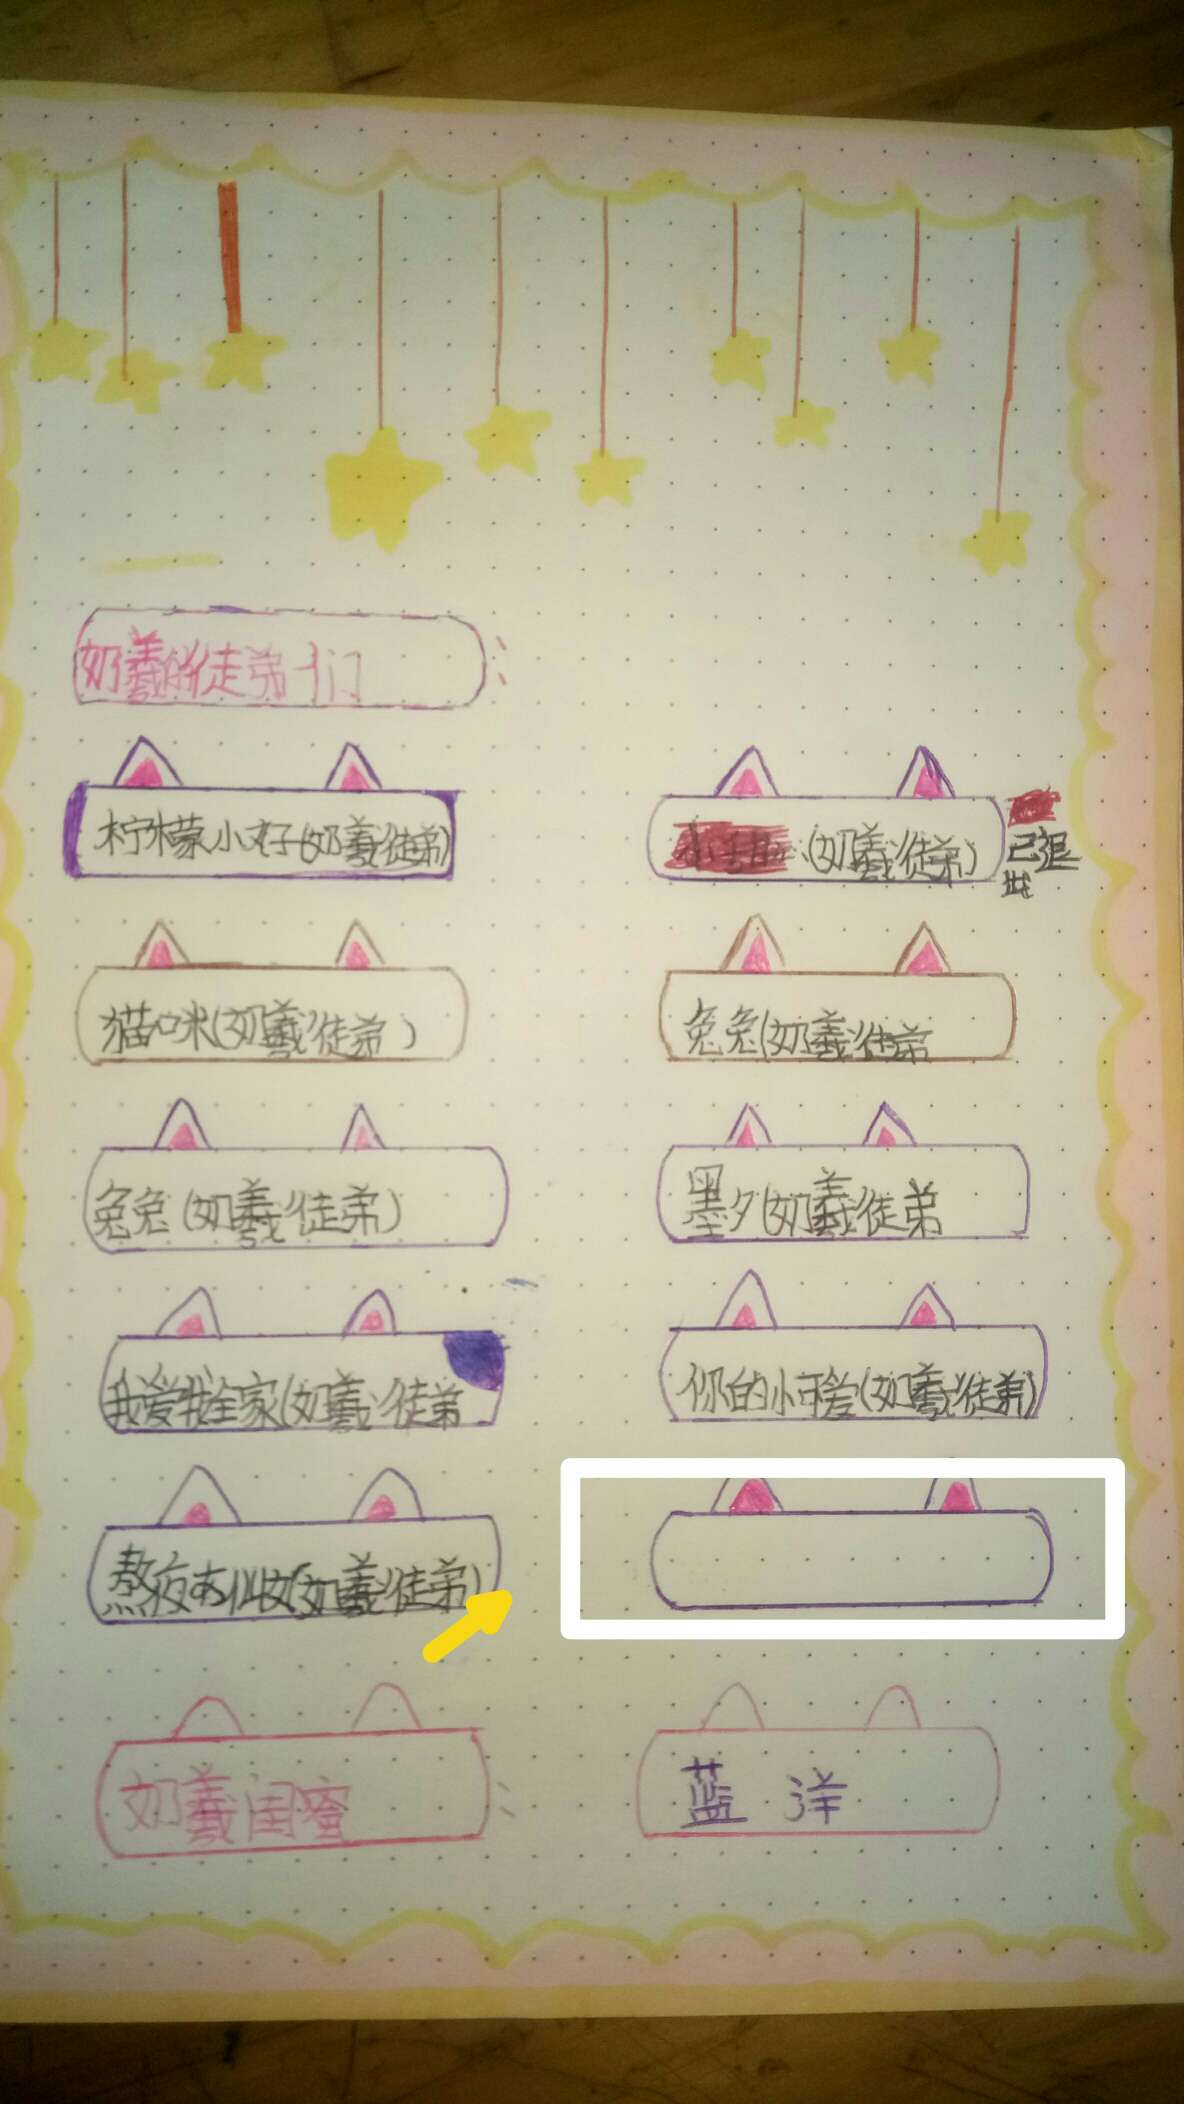 奶羲的徒弟们
柠檬小好(奶羲徒弟)
(奶羲徒弟)
已退出
猫咪(奶羲徒弟)
兔兔(奶羲徒弟
兔兔(奶羲徒弟)
墨夕(奶羲徒弟
我爱我全家(奶羲徒弟
你的小可爱(奶羲徒弟)
熬夜(奶羲徒弟)
奶羲闺蜜
蓝洋